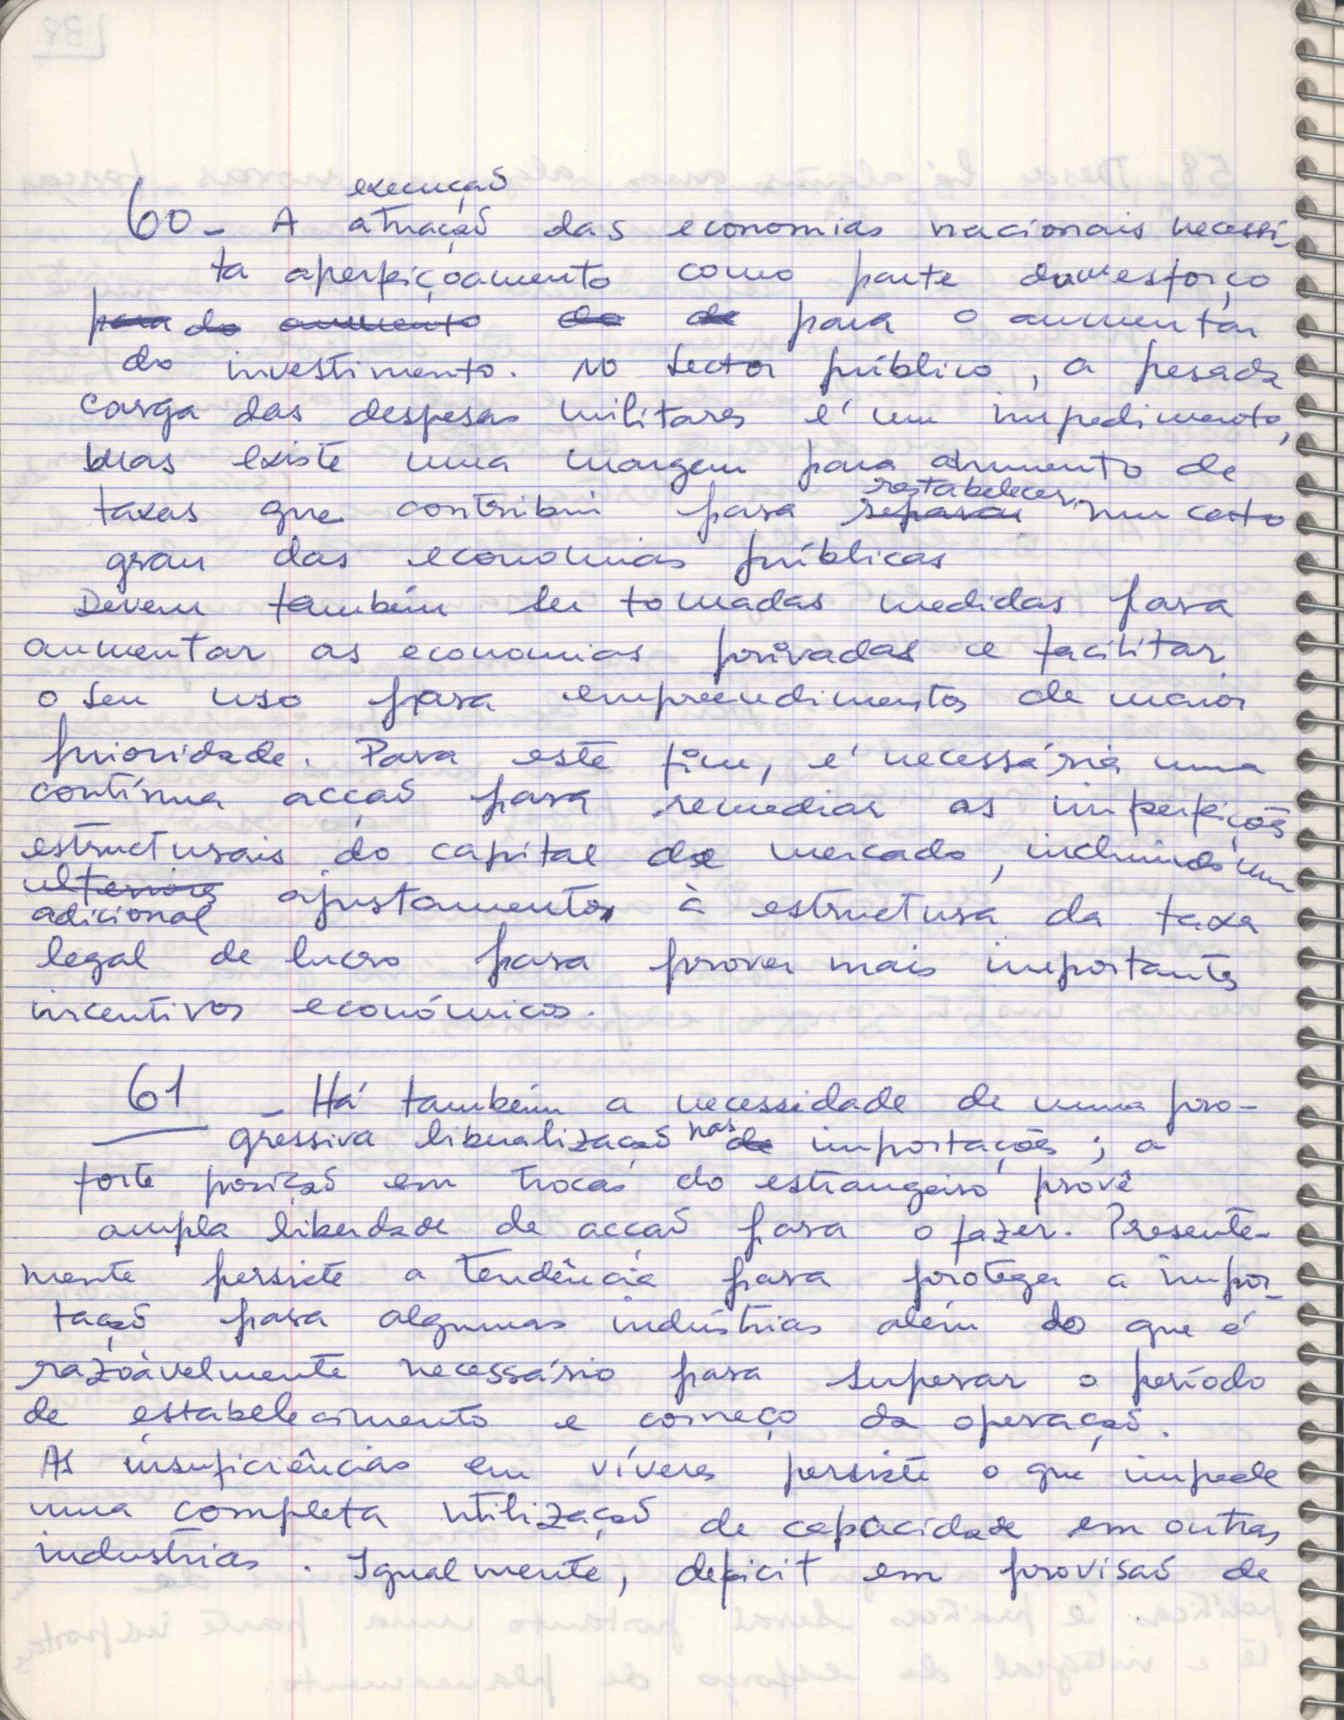 execução
60 - A atuação das economias nacionais necessi-
ta aperfeiçoamento como parte dum esforço
para do aumento do de para o aumentar
do investimento. No sector público, a pesada
carga das despesas militares é um impedimento,
mas existe uma margem para aumento de
restabelecer
taxas que contribui para reparar um certo
grau das economias públicas
Devem também ser tomadas medidas para
aumentar as economias privadas e facilitar
o seu uso para empreendimentos de maior
prioridade. Para este fim, é necessária uma
contínua acção para remediar as imperfeições
estructurais do capital de mercado, incluindo um
ulteriores
adicional ajustamento à estructura da taxa
legal de lucro para prover mais importantes
incentivos económicos.
61 - Há também a necessidade de uma pro-
gressiva liberalização nas de importações; a
forte posição em trocas do estrangeiro provê
ampla liberdade de acção para o fazer. Presente-
mente persiste a tendência para proteger a impor-
tação para algumas indústrias além do que é
razoàvelmente necessário para superar o período
de estabelecimento e começo da operação.
As insuficiências em víveres persiste o que impede
uma completa utilização de capacidade em outras
industrias. Igualmente, deficit em provisão de